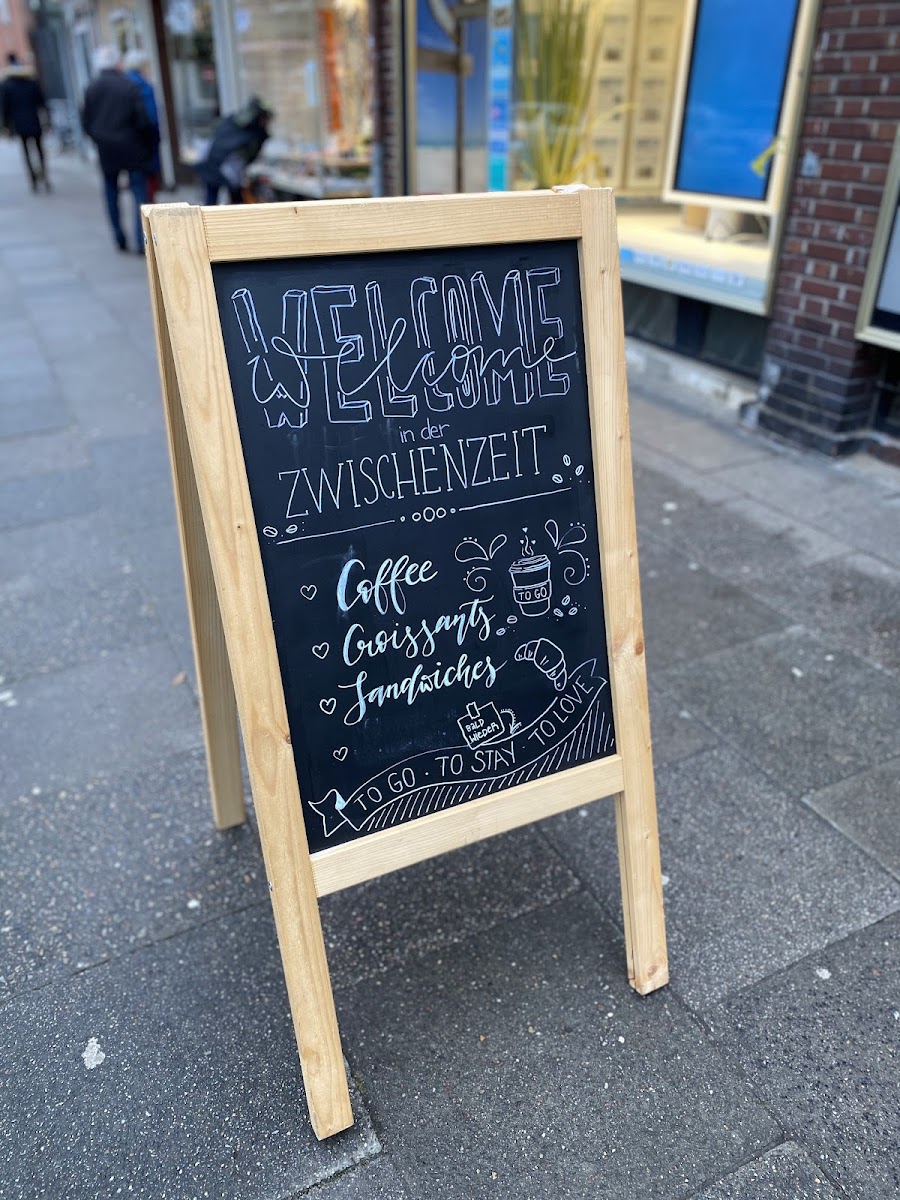 WELCOME
Welcome
in der
ZWISCHENZEIT
Coffee
TO GO
Croissants
Sandwiches
BALD
WIEDER
TO GO · TO STAY · TO LOVE